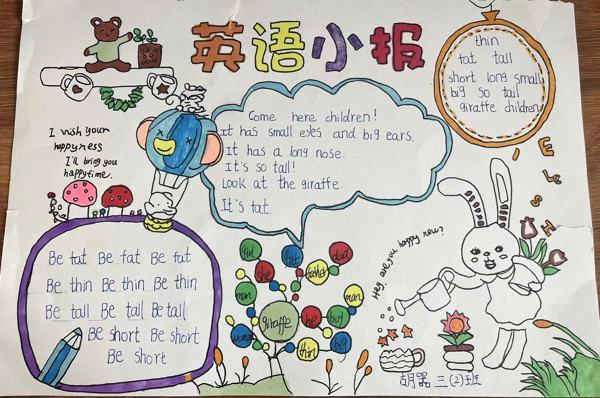 英语小报
thin
fat tall
short long small
big so tail
giraffe children
Come here children!
It has small eyes and big ears.
It has a long nose.
It's so tall!
Look at the giraffe.
It's fat.
I wish your
happyness
I'll bring you
happytime.
ENGLISH
Be fat Be fat Be fat
Be thin Be thin Be thin
Be tall Be tall Be tall
Be short Be short
Be short
Hey, are you happy now?
fat
dad
she
father
man
man
giraffe
he
boy
woman
thin
big
三(2)班